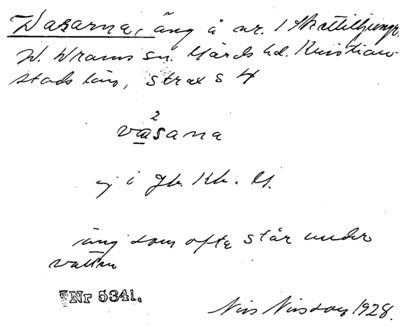 Wasarna, äng å nr. 1 Skättilljunga
W. Wrams sn. Gärds hd. Kristian-
stads län, strax s 4
2
vāsana
ej i Jb. Kb. G.
äng som ofta står under
vatten
Nr 5341.
Nils Nilsson 1928.